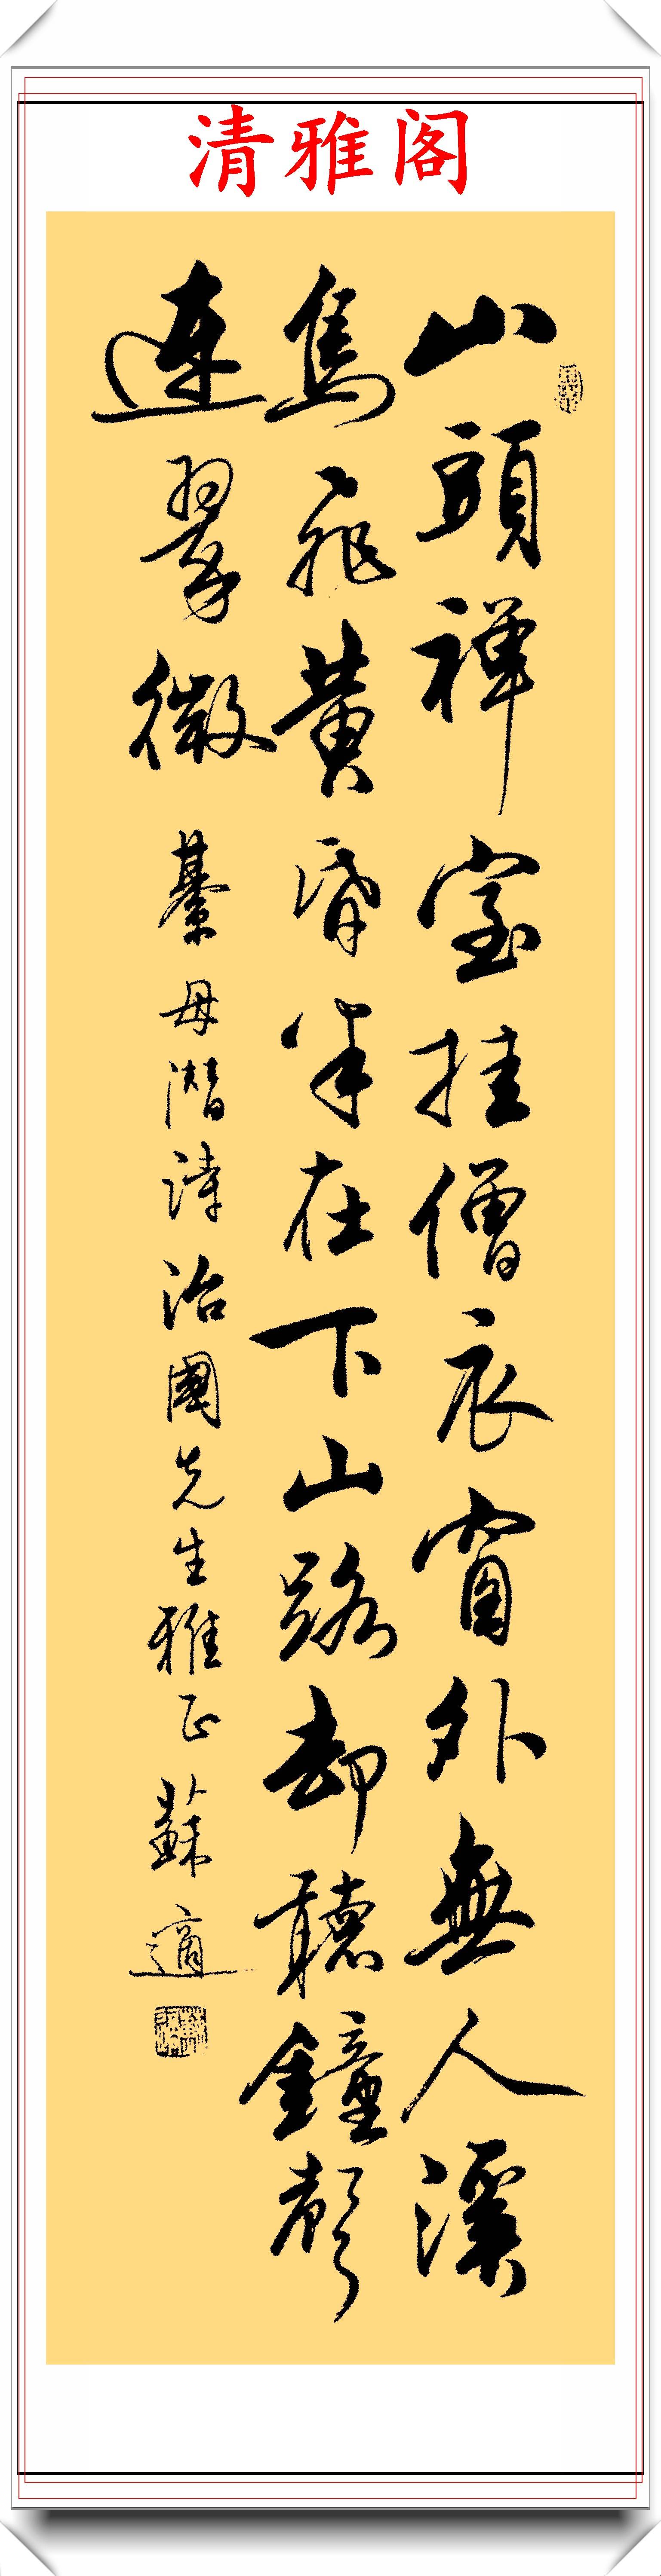 清雅阁
山頭禅室挂僧衣窗外無人溪
鳥飛黄昏半在下山路却聽鐘聲
連翠微 綦毋潜詩 治國先生雅正 蘇適